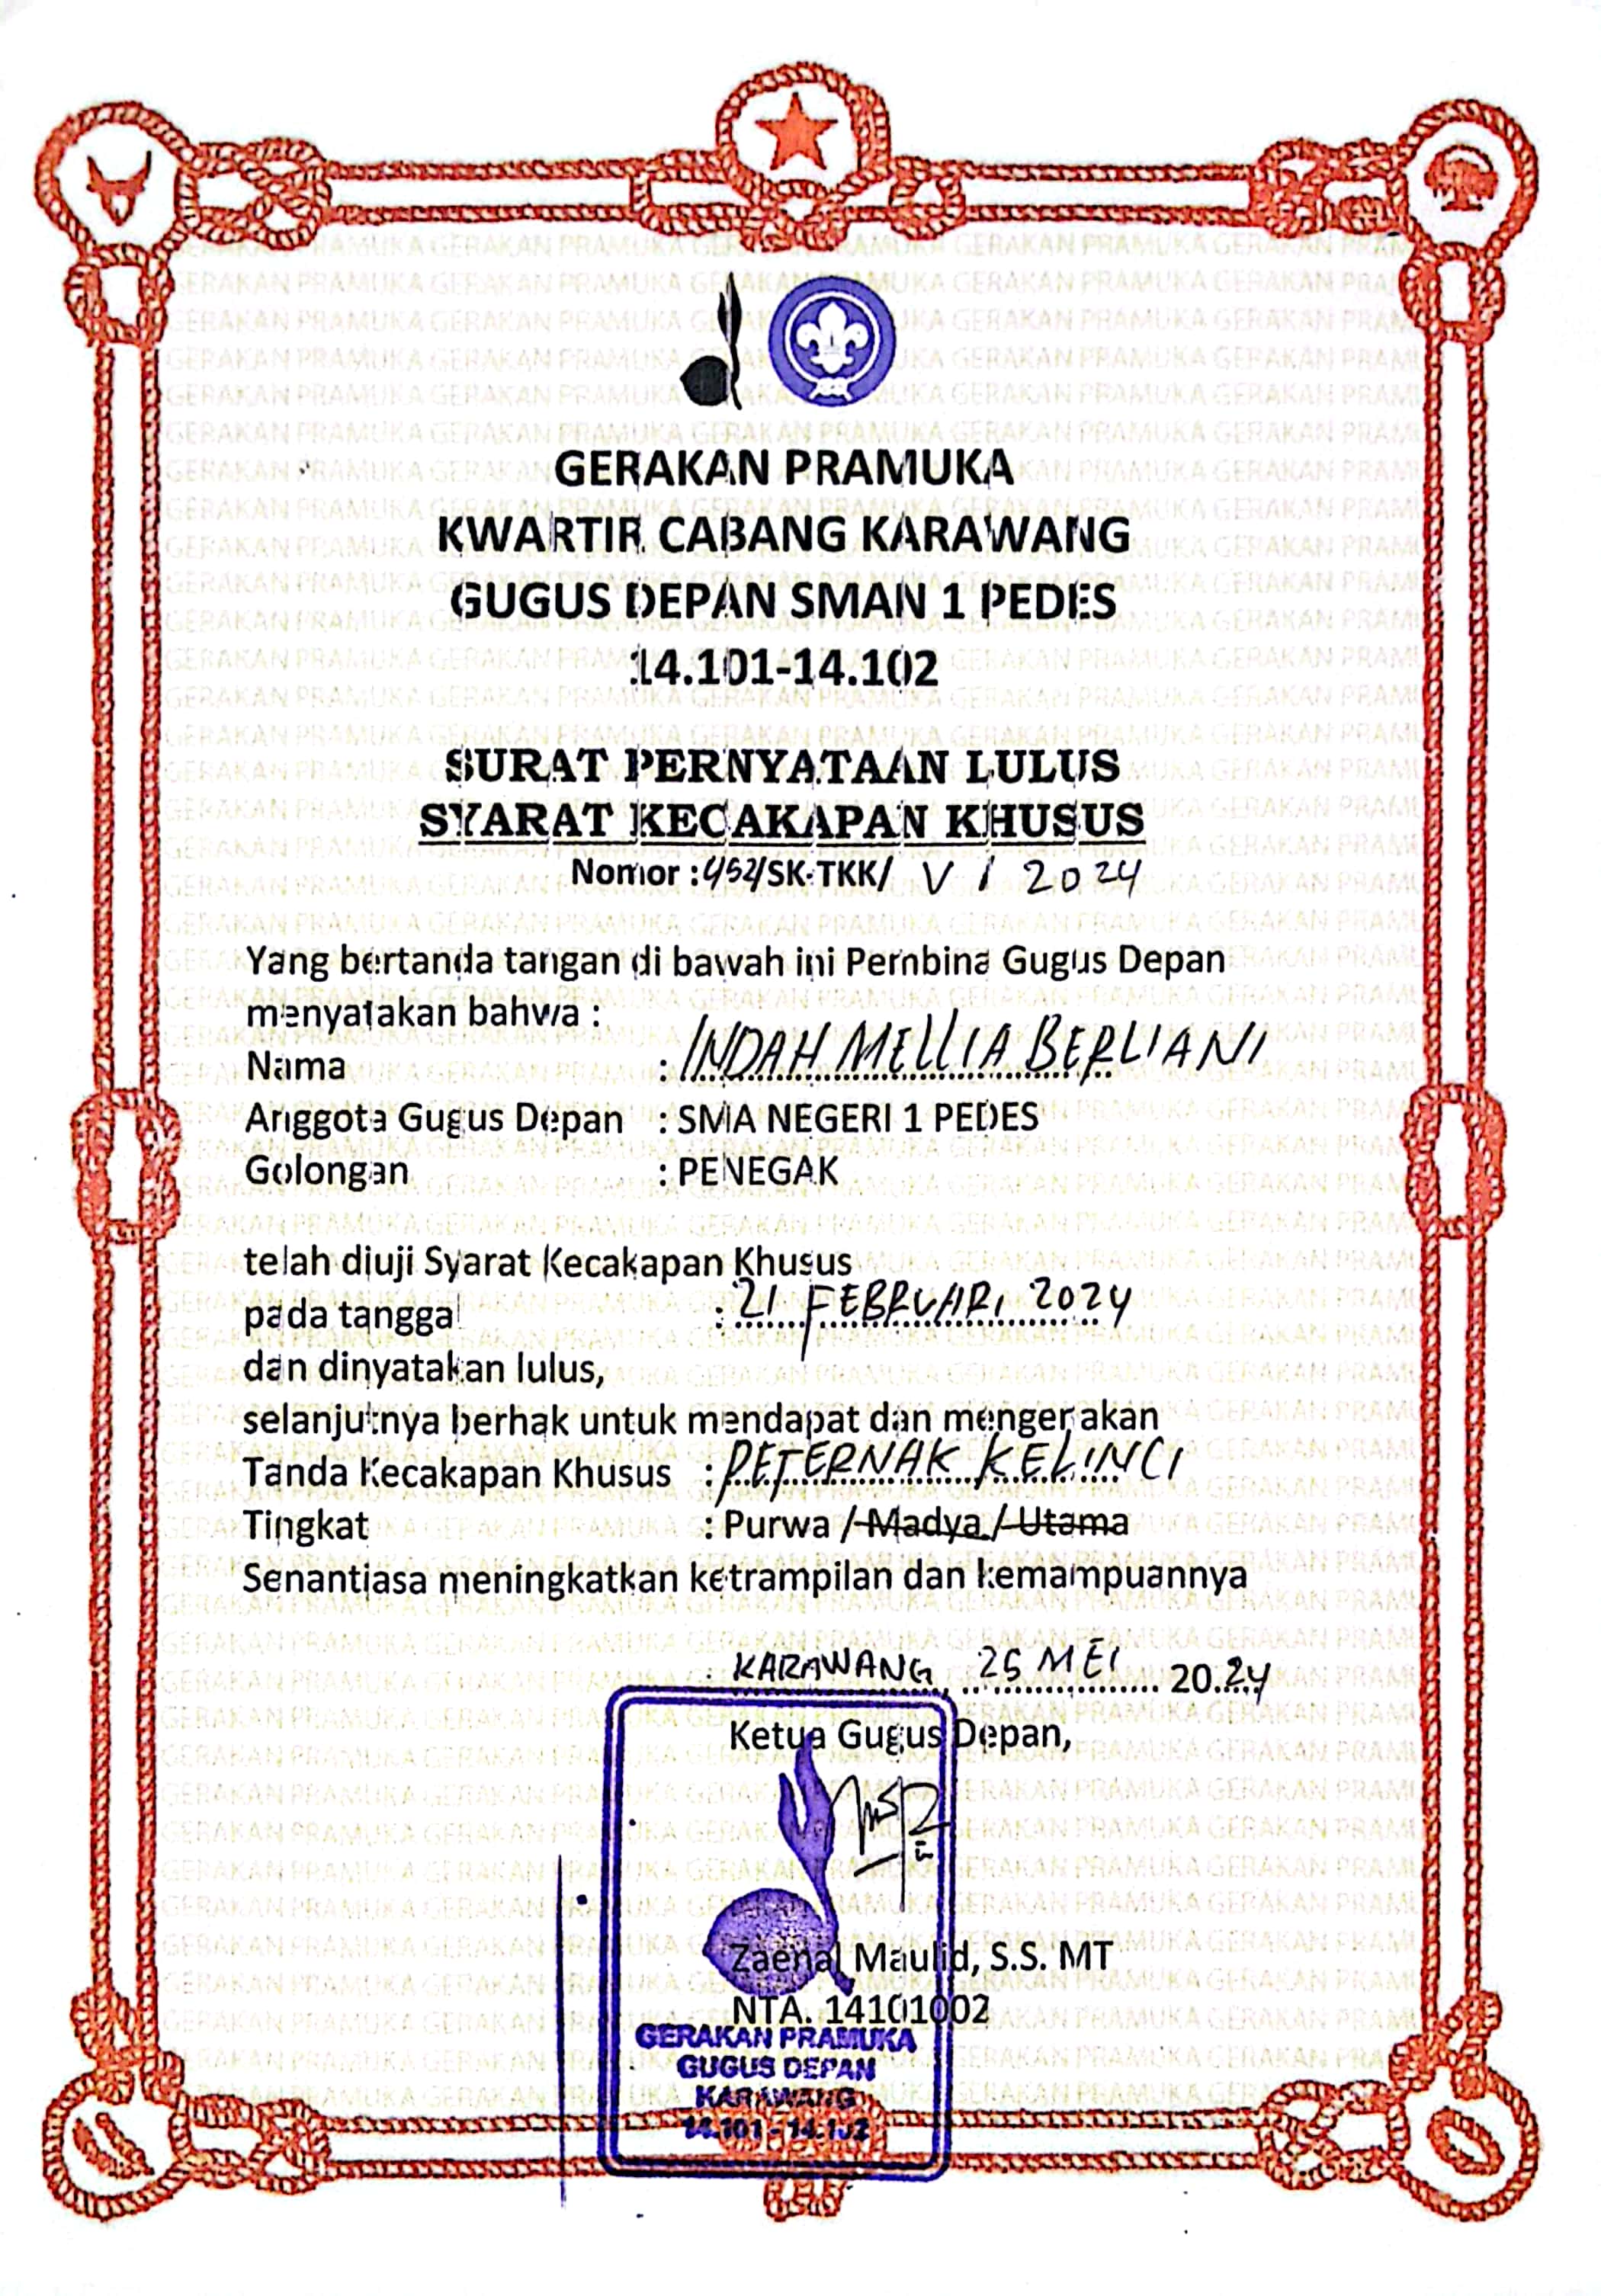 GERAKAN PRAMUKA
KWARTIR CABANG KARAWANG
GUGUS DEPAN SMAN 1 PEDES
14.101-14.102
SURAT PERNYATAAN LULUS
SYARAT KECAKAPAN KHUSUS
Nomor : 452/SK-TKK/ V / 2024
Yang bertanda tangan di bawah ini Pembina Gugus Depan
menyatakan bahwa :
Nama : INDAH MELLIA BERLIANI
Anggota Gugus Depan : SMA NEGERI 1 PEDES
Golongan : PENEGAK
telah diuji Syarat Kecakapan Khusus
pada tanggal : 21 FEBRUARI 2024
dan dinyatakan lulus,
selanjutnya berhak untuk mendapat dan mengenakan
Tanda Kecakapan Khusus : PETERNAK KELINCI
Tingkat : Purwa / Madya / Utama
Senantiasa meningkatkan ketrampilan dan kemampuannya
KARAWANG, 25 MEI 2024
Ketua Gugus Depan,
Zaenal Maulid, S.S. MT
NTA. 14101002
GERAKAN PRAMUKA
GUGUS DEPAN
KARAWANG
14.101 - 14.102